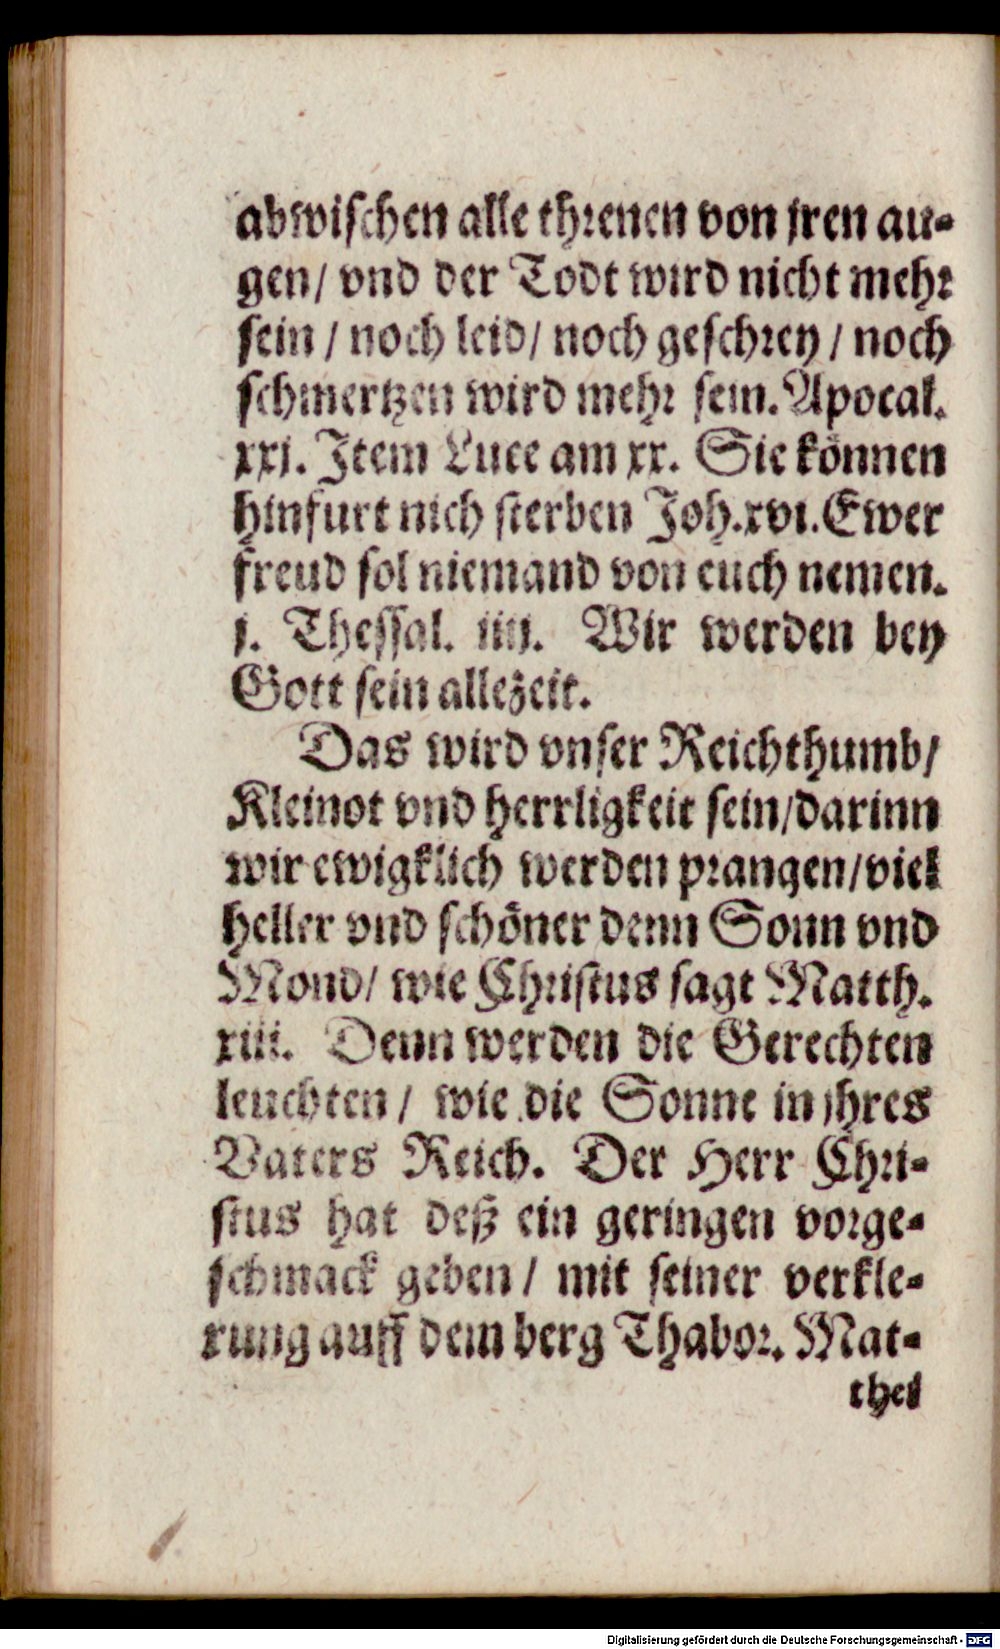 abwischen alle threnen von jren au-
gen/ vnd der Todt wird nicht mehr
sein / noch leid/ noch geschrey / noch
schmertzen wird mehr sein. Apocal.
xxj. Jtem Luce am xx. Sie können
hinfurt nich sterben Joh. xvi. Ewer
freud sol niemand von euch nemen.
j. Thessal. iiij. Wir werden bey
Gott sein allezeit.
Das wird vnser Reichthumb/
Kleinot vnd herrligkeit sein/darinn
wir ewigklich werden prangen/viel
heller vnd schöner denn Sonn vnd
Mond/ wie Christus sagt Matth.
xiii. Denn werden die Gerechten
leuchten / wie die Sonne in jhres
Vaters Reich. Der Herr Chri-
stus hat deß ein geringen vorge-
schmack geben / mit seiner verkle-
rung auff dem berg Thabor. Mat-
thei
Digitalisierung gefördert durch die Deutsche Forschungsgemeinschaft - DFG